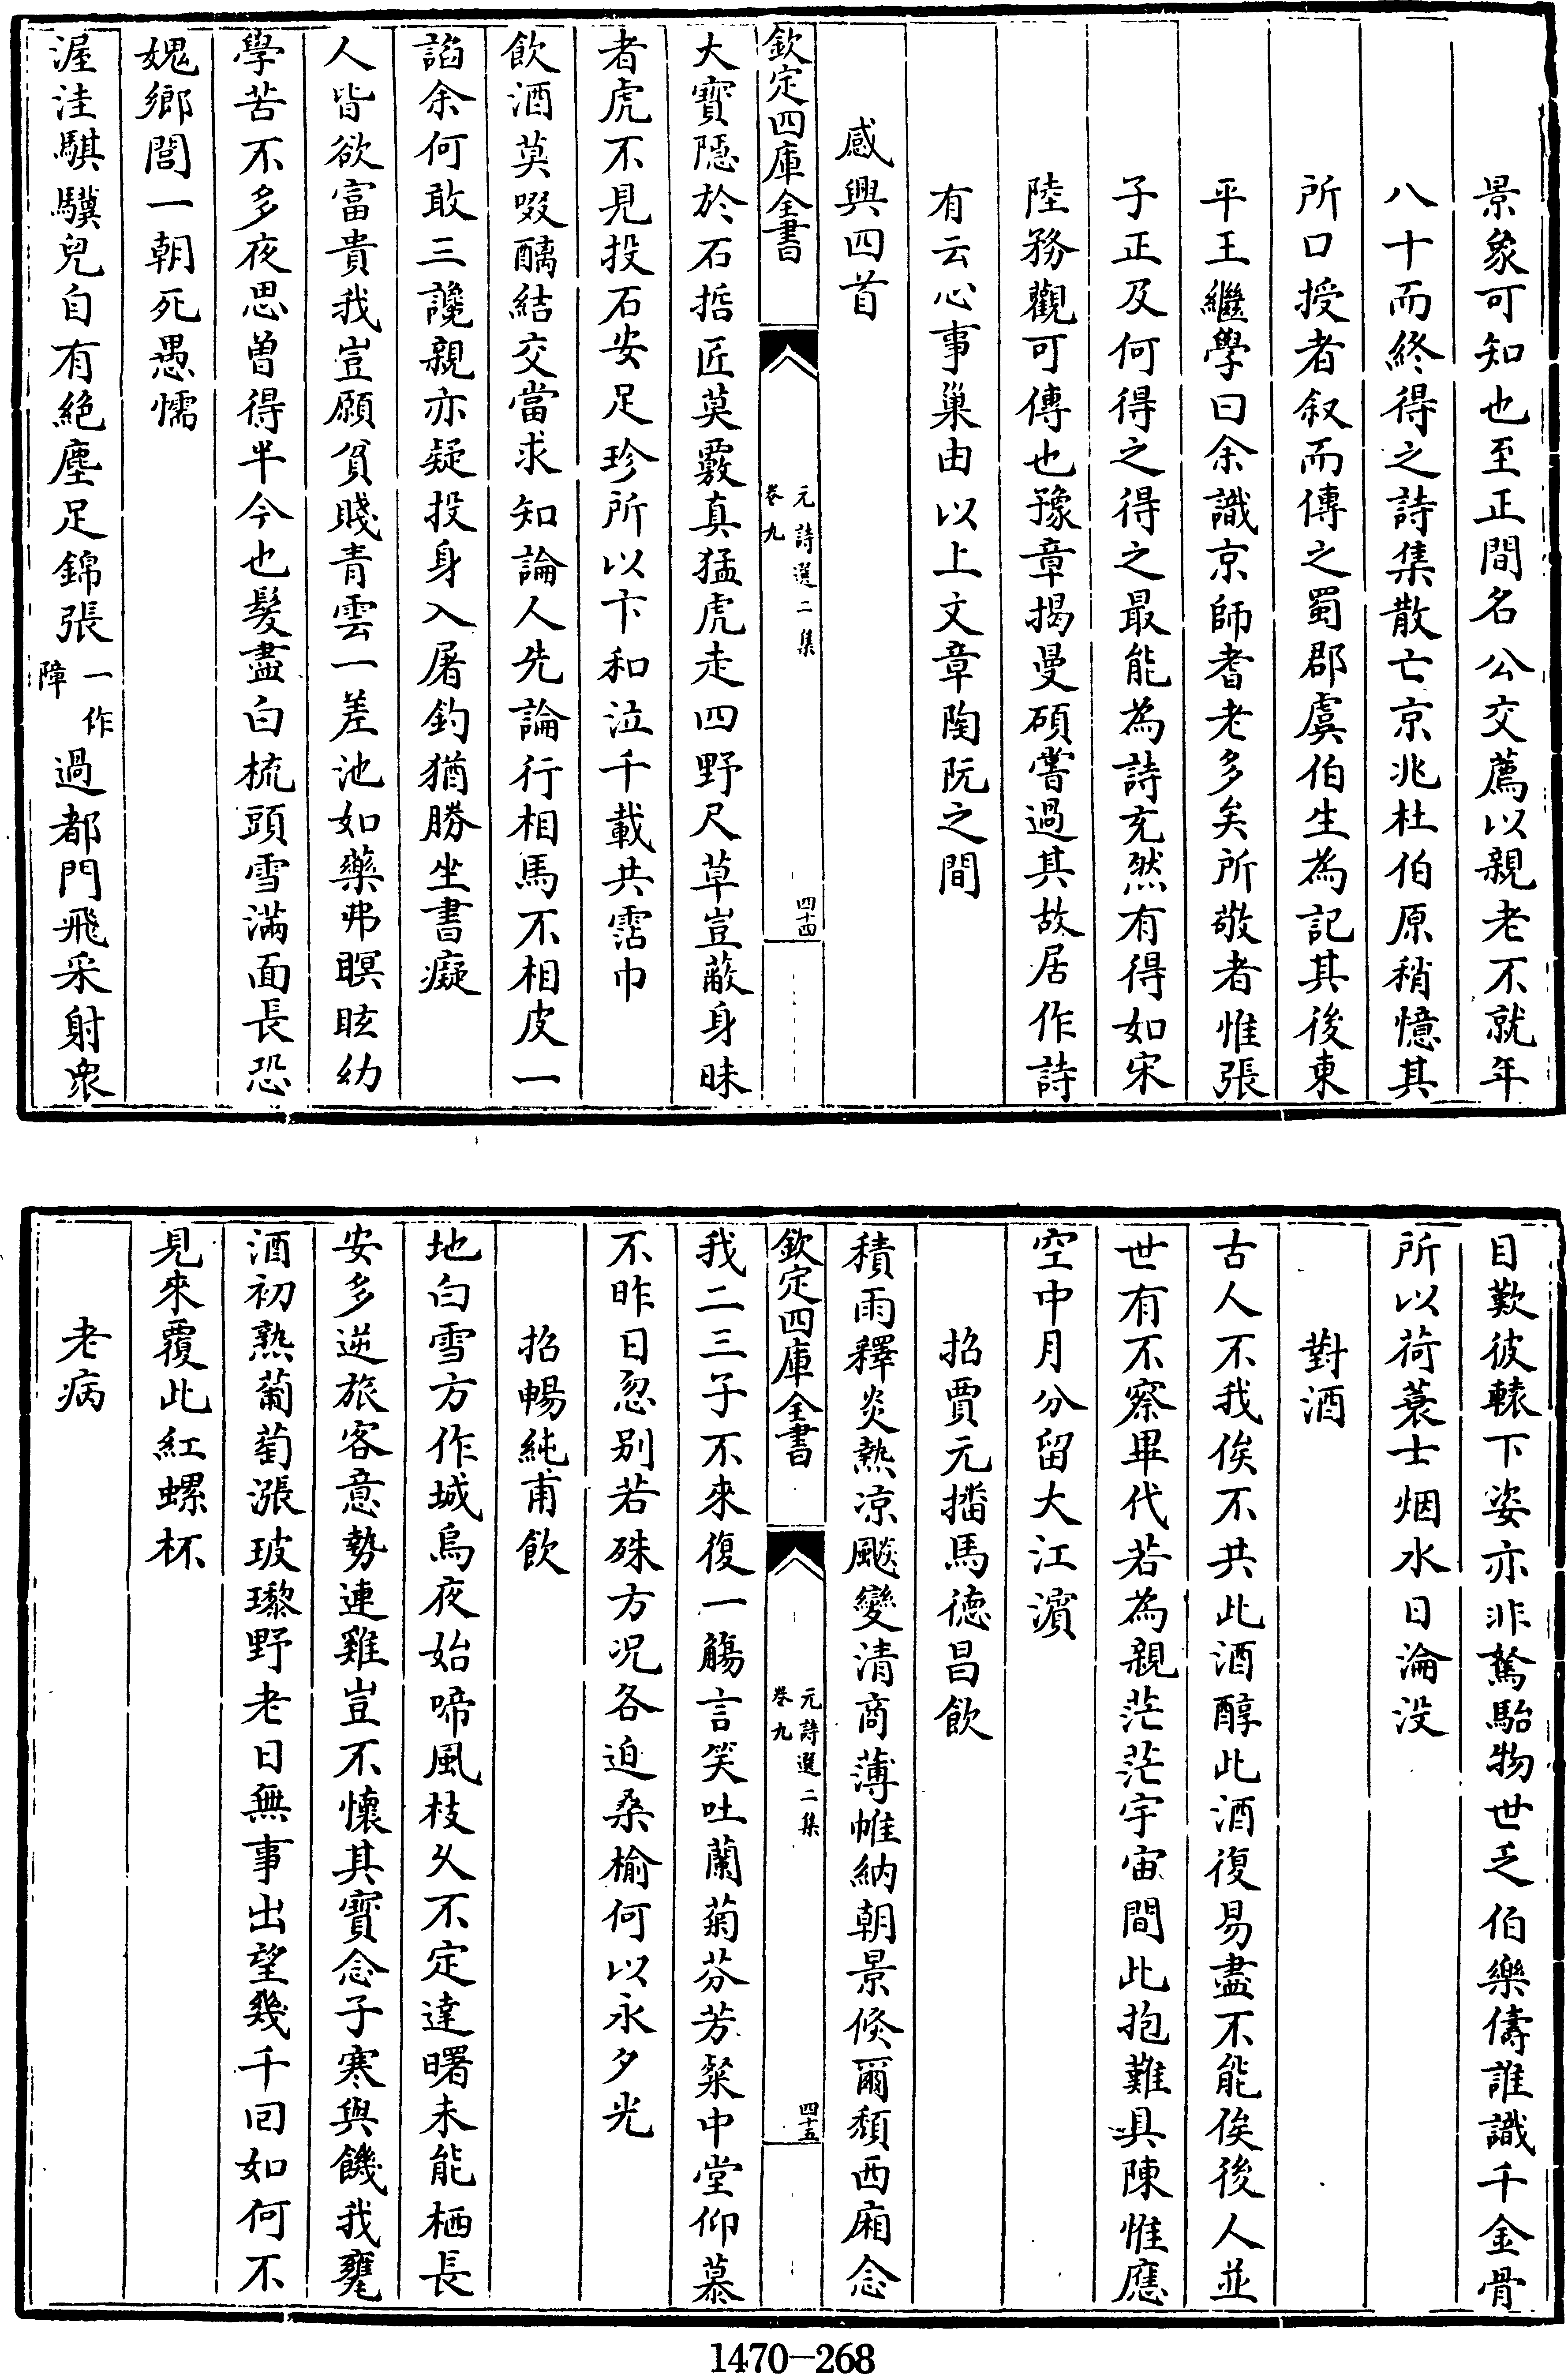 景象可知也至正間名公交薦以親老不就年
八十而終得之詩集散亡京兆杜伯原稍憶其
所口授者叙而傳之蜀郡虞伯生為記其後東
平王繼學曰余識京師耆老多矣所敬者惟張
子正及何得之得之最能為詩充然有得如宋
陸務觀可傳也豫章揭曼碩嘗過其故居作詩
有云心事巢由以上文章陶阮之間
感興四首
欽定四庫全書
元詩選二集
卷九
四十四
大寶隱於石哲匠莫覈真猛虎走四野尺草豈蔽身昧
者虎不見投石安足珍所以卞和泣千載共霑巾
飲酒莫啜醨結交當求知論人先論行相馬不相皮一
謟余何敢三讒親亦疑投身入屠釣猶勝坐書癡
人皆欲富貴我豈願貧賤青雲一差池如藥弗瞑眩幼
學苦不多夜思曾得半今也髮盡白梳頭雪滿面長恐
媿鄉閭一朝死愚懦
渥洼騏驥兒自有絶塵足錦張一作障過都門飛采射衆
目歎彼轅下姿亦非駑駘物世乏伯樂儔誰識千金骨
所以荷蓑士烟水日淪没
對酒
古人不我俟不共此酒醇此酒復易盡不能俟後人並
世有不察畢代若為親茫茫宇宙間此抱難具陳惟應
空中月分留大江濱
招賈元播馬德昌飲
積雨釋炎熱凉飈變清商薄帷納朝景倐爾頹西廂念
欽定四庫全書
元詩選二集
卷九
四十五
我二三子不來復一觴言笑吐蘭菊芬芳粲中堂仰慕
不昨日忽别若殊方况各迫桑榆何以永夕光
招暢純甫飲
地白雪方作城烏夜始啼風枝久不定達曙未能栖長
安多逆旅客意勢連雞豈不懷其寳念子寒與饑我甕
酒初熟葡萄漲玻瓈野老日無事出望幾千回如何不
見來覆此紅螺杯
老病
1470-268